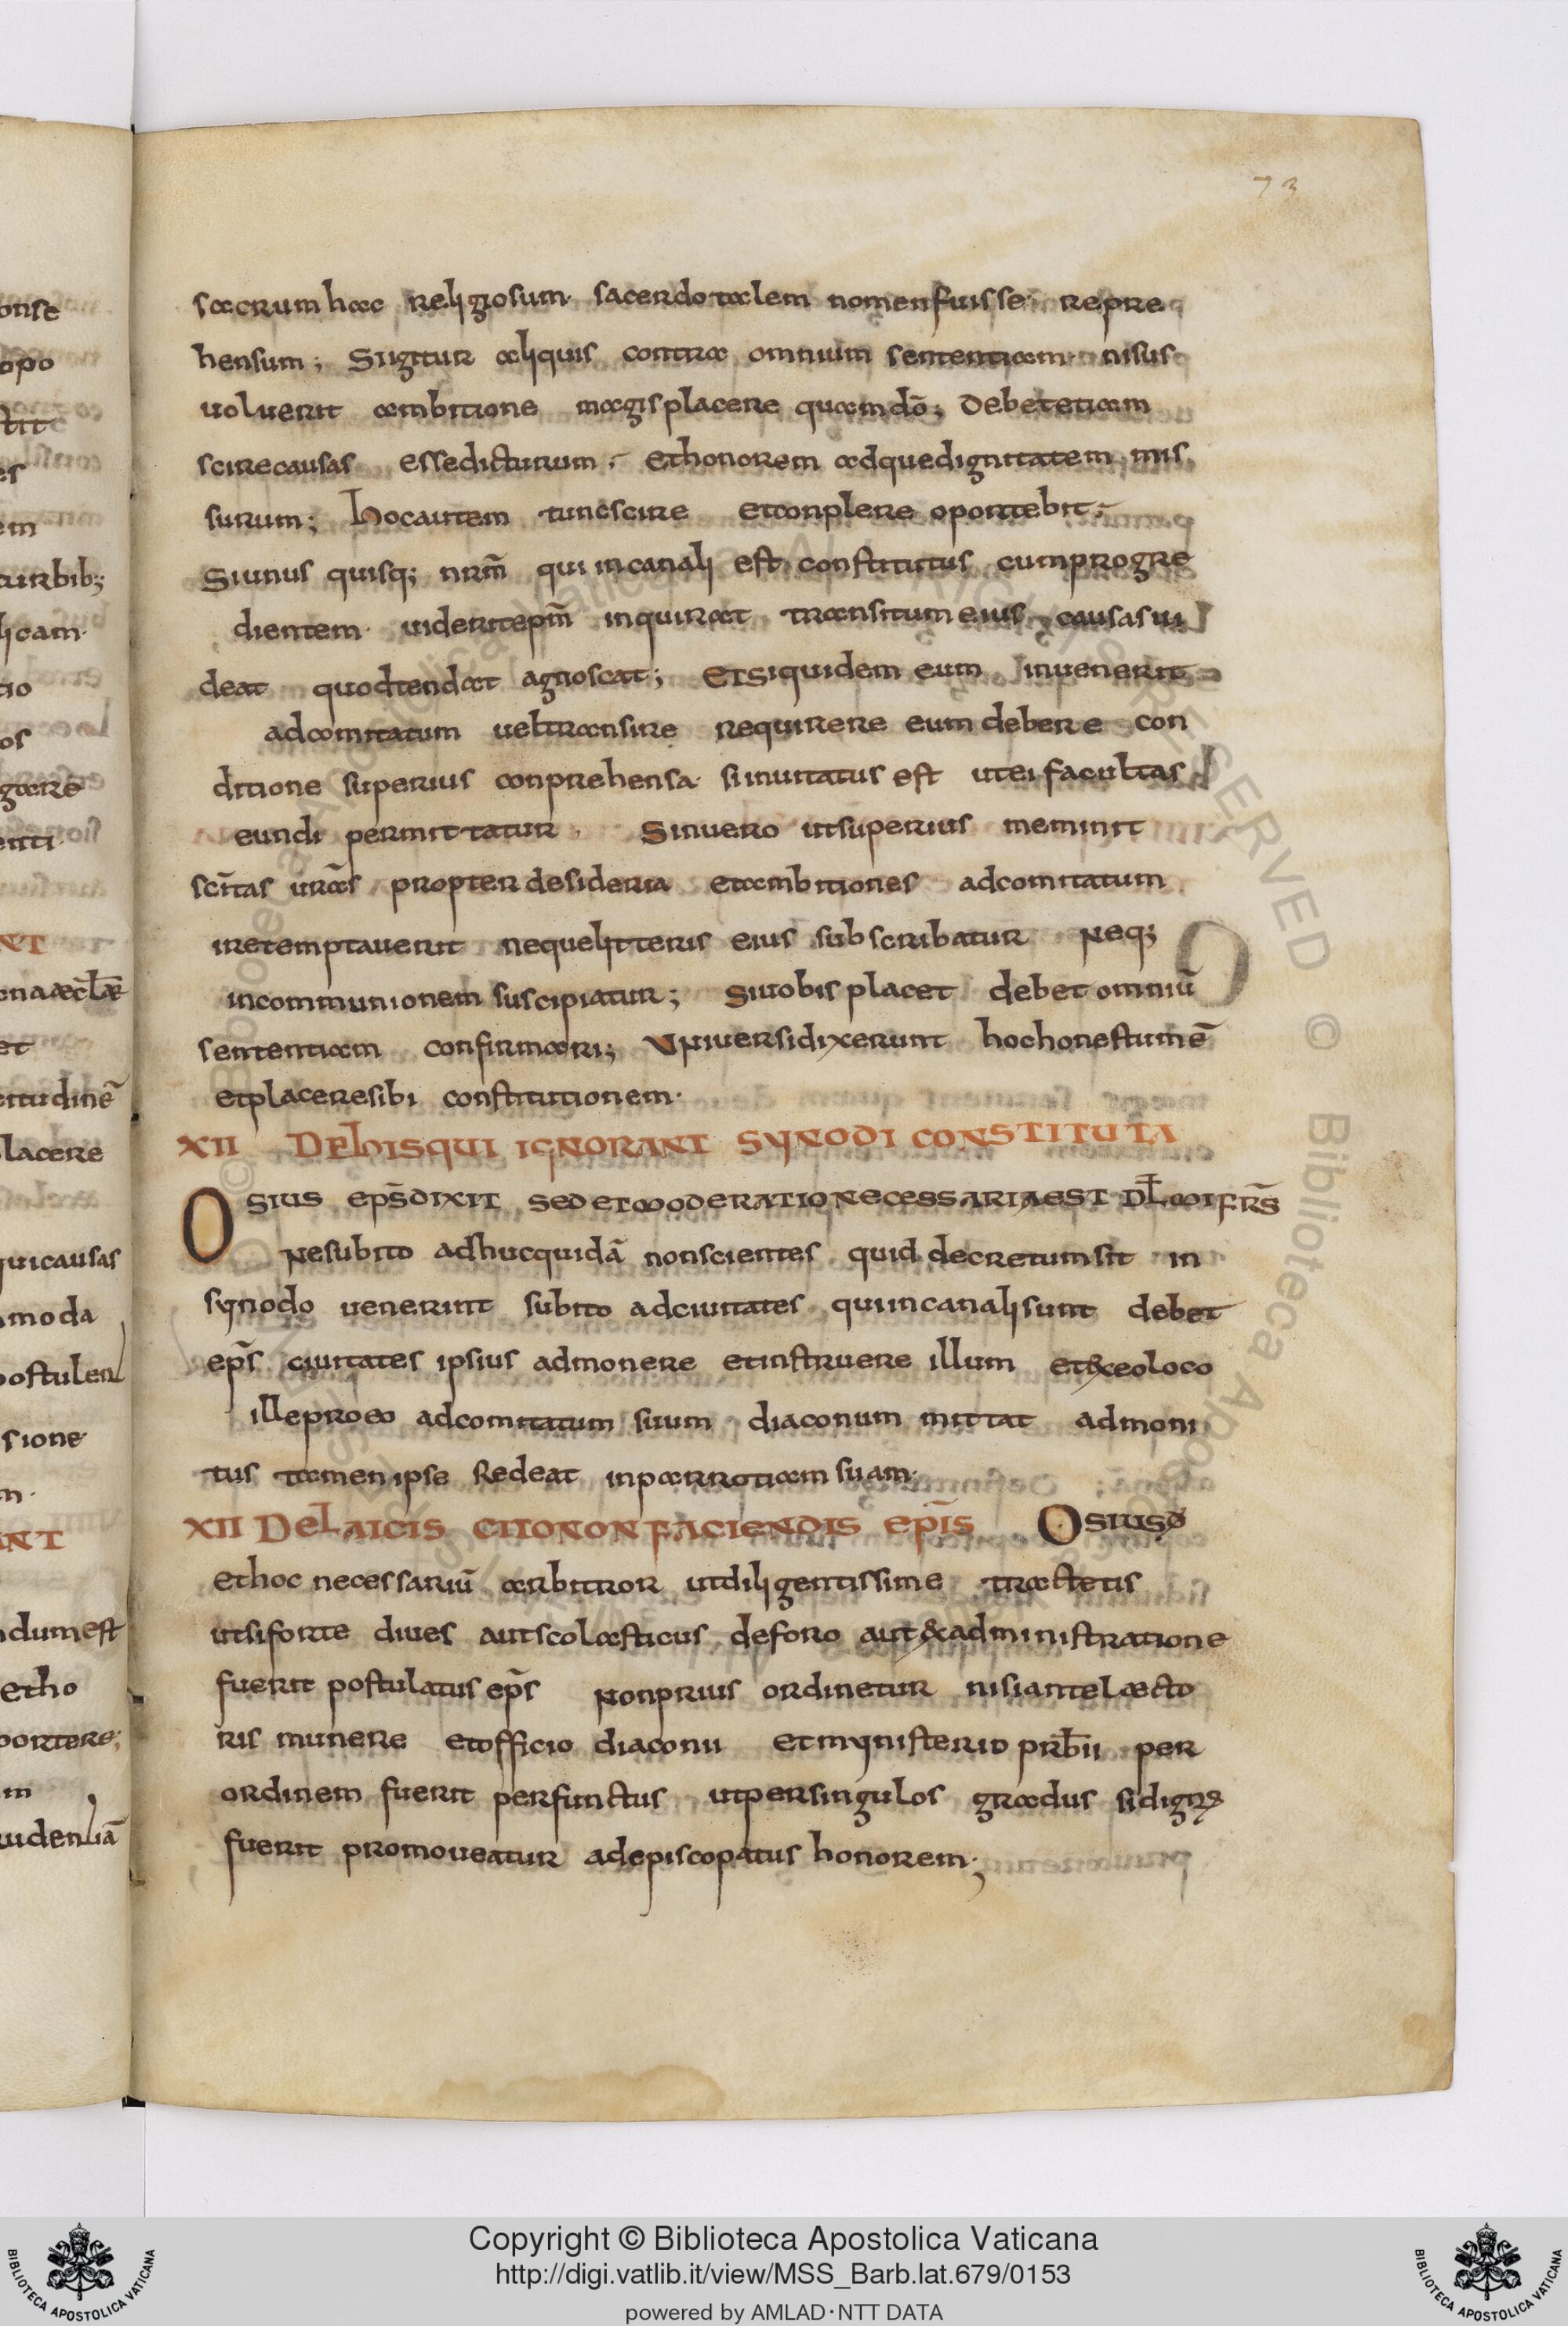 73
sacrum hac religiosum· sacerdotalem nomen fuisse· repre
hensum; Siigitur aliquis contra omnium sententiam· nisus
uoluerit ambitione magis placere quam dō; debet etiam
scire causas esse dicturum; et honorem adque dignitatem mis
surum; hoc autem tunc scire et conplere oportebit;
Si unus quisq; nrm̄ qui in canali est constitutus cum progre
dientem· uiderit epm̄ inquirat transitum eius causas ui
deat quo tendat agnoscat; Et si quidem eum inuenerit
ad comitatum uel transire requirere eum debere con
ditione superius conprehensa· si inuitatus est ut ei facultas
eundi permittatur· Sin uero ut superius meminit
sc̄itas urās propter desideria et ambitiones ad comitatum
ire temptauerit neque litteris eius subscribatur Neq;
in communionem suscipiatur; Si uobis placet debet omniū
sententiam confirmari; Uniuersi dixerunt hoc honestum ē
et placere sibi constitutionem·
XII De his qui ignorant synodi constituta
Osius ep̄s dixit sed et moderatio necessaria est dl̄mi fr̄s
Ne subito adhuc quidā non scientes quid decretum sit in
synodo uenerint subito ad ciuitates qui in canali sunt debet
ep̄s ciuitates ipsius admonere et instruere illum et ex eo loco
ille pro eo ad comitatum suum diaconum mittat admoni
tus tamen ipse redeat in parrotiam suam·
XII De laicis cito non faciendis epīs Osius đ
et hoc necessariū arbitror ut diligentissime tractetis
ut si forte diues aut scolasticus de foro aut ex administratione
fuerit postulatus ep̄s Non prius ordinetur nisi ante læcto
ris munere et officio diaconii et mynisterio prb̄ii per
ordinem fuerit perfunctus ut per singulos gradus si dignꝰ
fuerit promoueatur ad episcopatus honorem·;
Copyright © Biblioteca Apostolica Vaticana
http://digi.vatlib.it/view/MSS_Barb.lat.679/0153
powered by AMLAD·NTT DATA
BIBLIOTECA APOSTOLICA VATICANA
BIBLIOTECA APOSTOLICA VATICANA